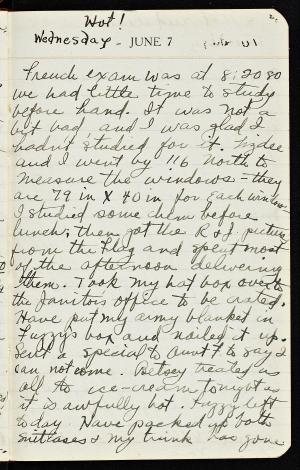 Hot!
Wednesday - JUNE 7
French exam was at 8:20 so
we had little time to study
before hand. It was not a
bit bad and I was glad I
hadn't studied for it. Lizdee
and I went by 116 North to
measure the windows - they
are 79 in X 40 in for each window
I studied some chem before
lunch, then got the R & J. picture
from the Flag and spent most
of the afternoon delivering
them. Took my hat box over to
the janitors office to be crated.
Have put my army blanket in
Fuzzy's box and nailed it up.
Sent a special to Aunt F. to say I
can not come. Betsey treated us
all to ice-cream tonight as
it is awfully hot. Fuzzy left
today. Have packed up both
suitcases & my trunk has gone